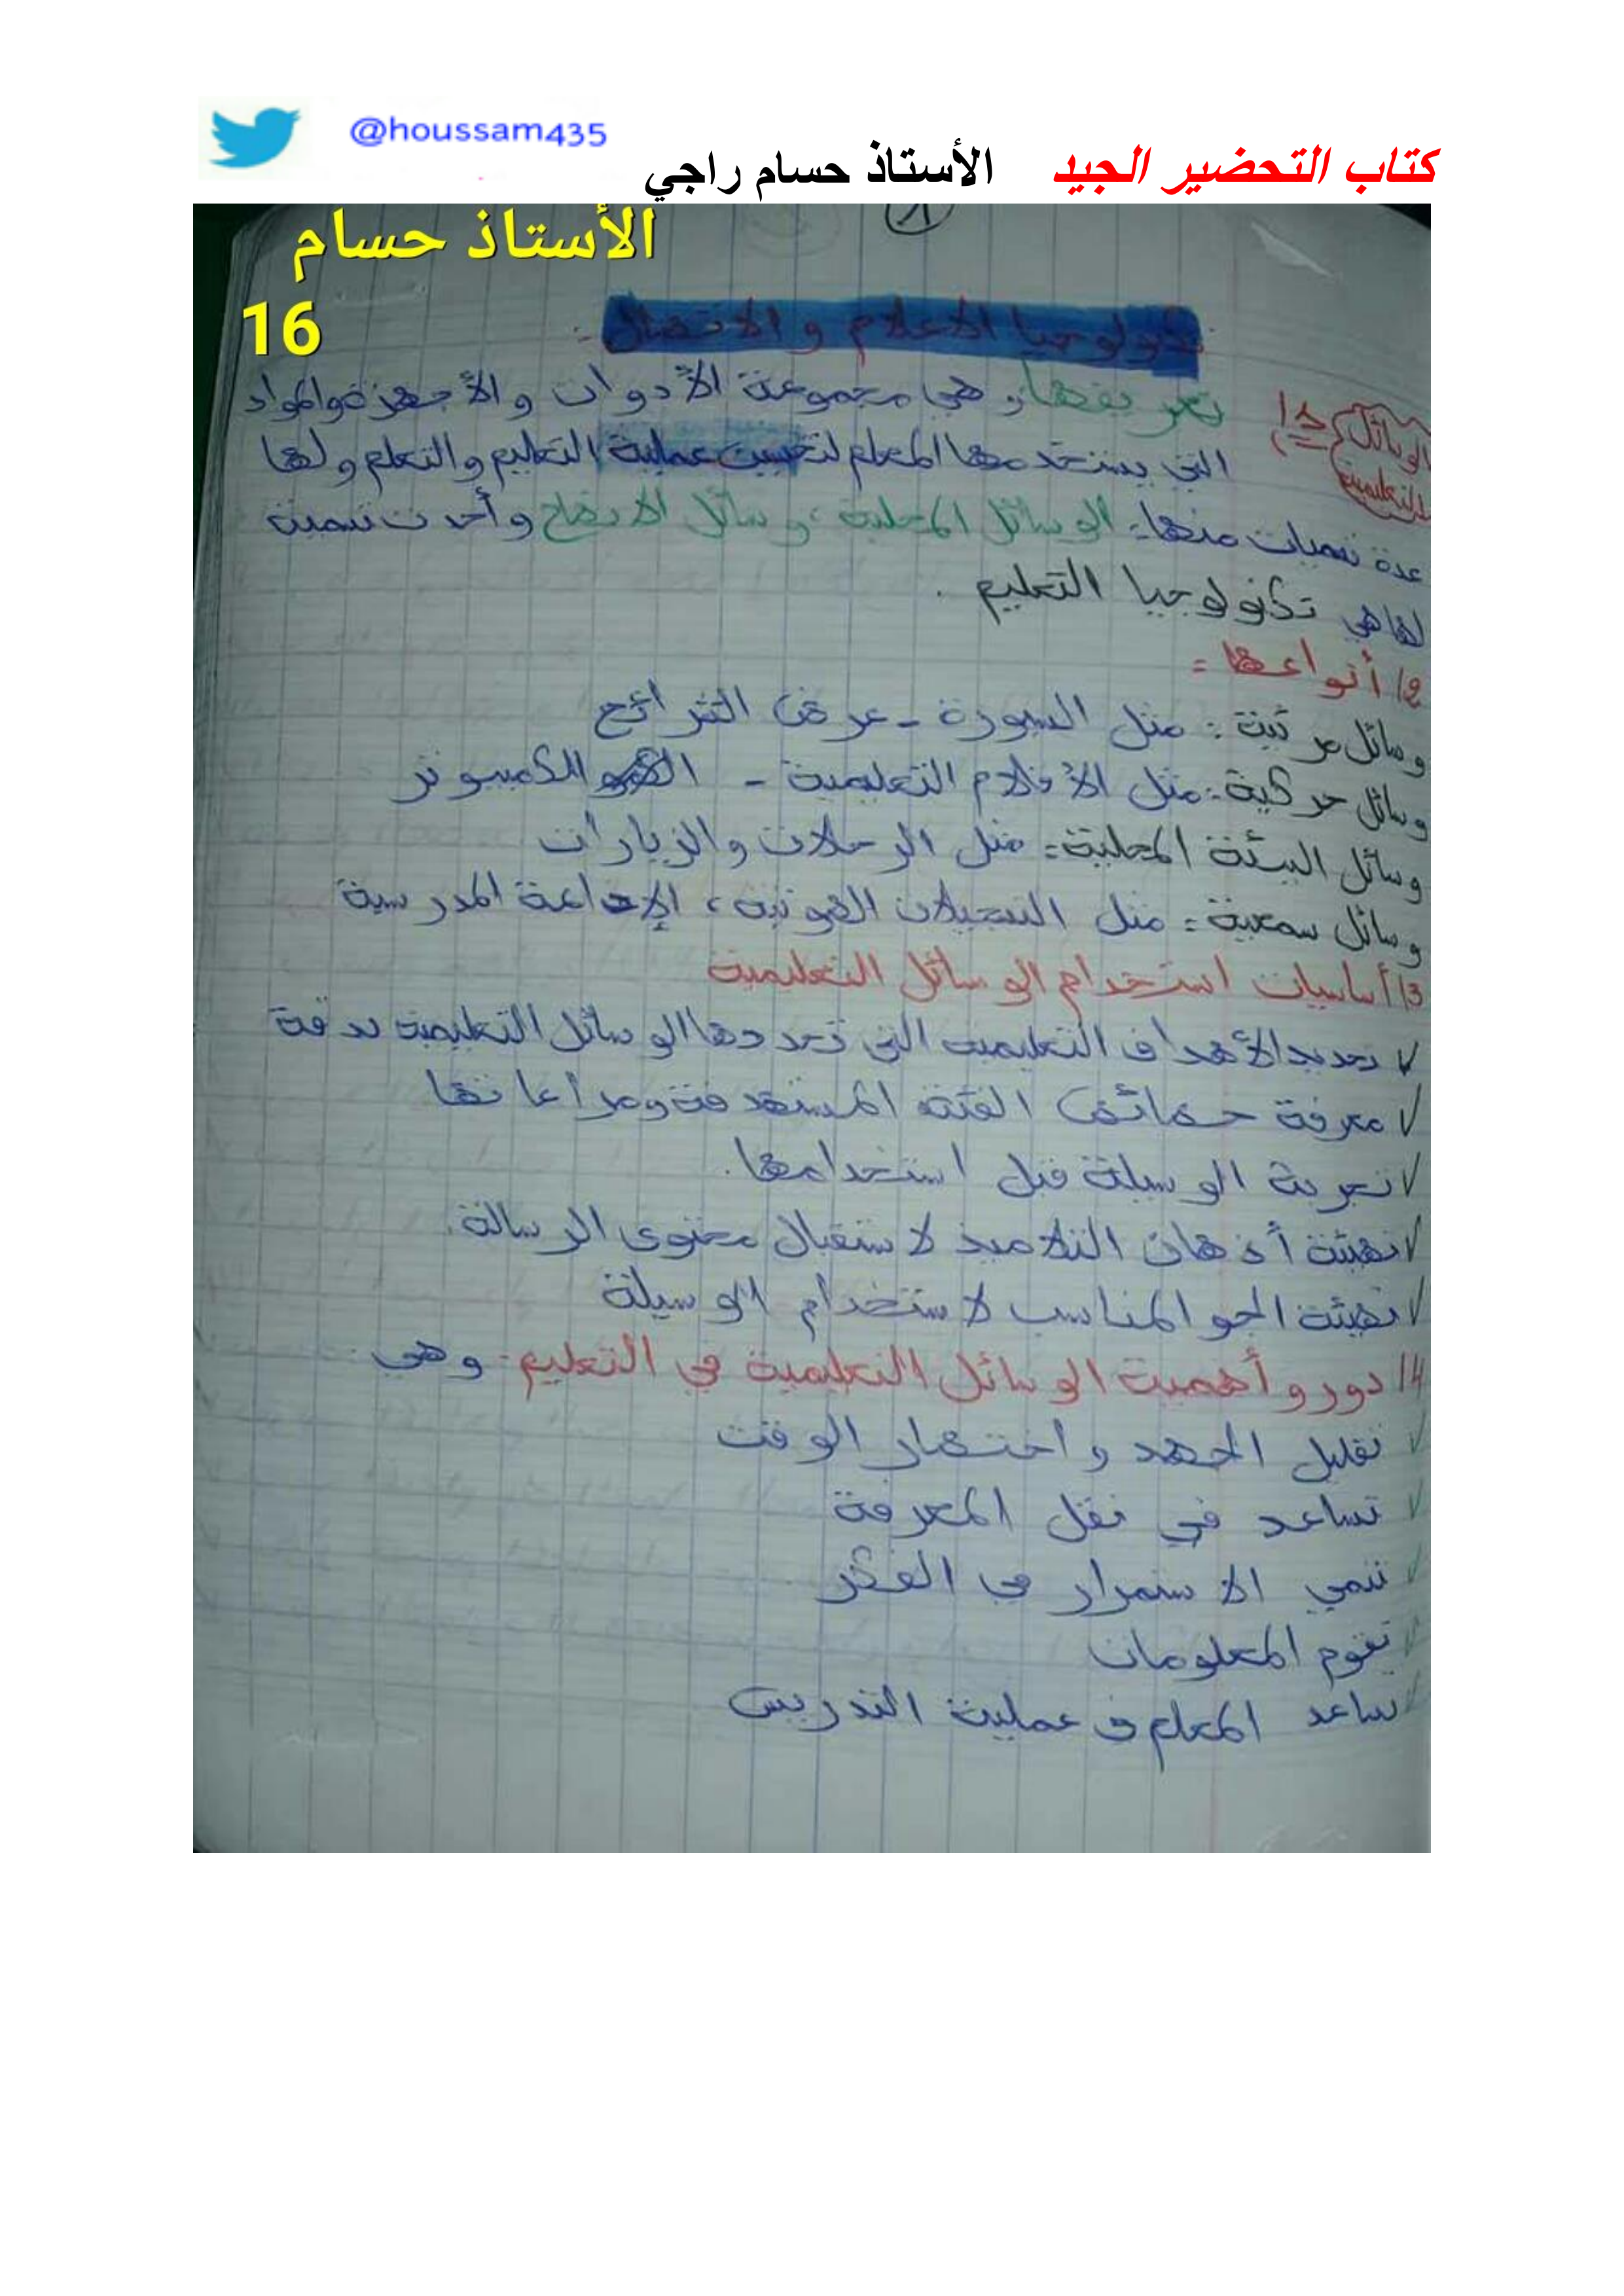 @houssam435
كتاب التحضير الجيد الأستاذ حسام راجي
الأستاذ حسام
16
تكنولوجيا الاعلام و الاتصال:
الوسائل التعليمية
1) تعريفها: هي مجموعة الأدوات والأجهزة والمواد
التي يستخدمها المعلم لتحسين عملية التعليم والتعلم ولها
عدة تسميات منها: الوسائل المحلية، وسائل الايضاح وأحدث تسمية
لها هي تكنولوجيا التعليم.
2/ أنواعها =
وسائل مرئية: مثل السبورة - عرض الشرائح
وسائل حركية: مثل الأفلام التعليمية - الكمبيوتر
وسائل البيئة المحلية: مثل الرحلات والزيارات
وسائل سمعية: مثل التسجيلات الصوتية، الإذاعة المدرسية
3/ أساسيات استخدام الوسائل التعليمية
✓ تحديد الأهداف التعليمية التي تحددها الوسائل التعليمية بدقة
✓ معرفة خصائص الفئة المستهدفة ومراعاتها
✓ تجربة الوسيلة قبل استخدامها.
✓ تهيئة أذهان التلاميذ لاستقبال محتوى الرسالة.
✓ تهيئة الجو المناسب لاستخدام الوسيلة
4/ دور وأهمية الوسائل التعليمية في التعليم: وهي
✓ تقليل الجهد واختصار الوقت
✓ تساعد في نقل المعرفة
✓ تنمي الاستمرار في الفكر
✓ تقوم المعلومات
✓ تساعد المعلم في عملية التدريس